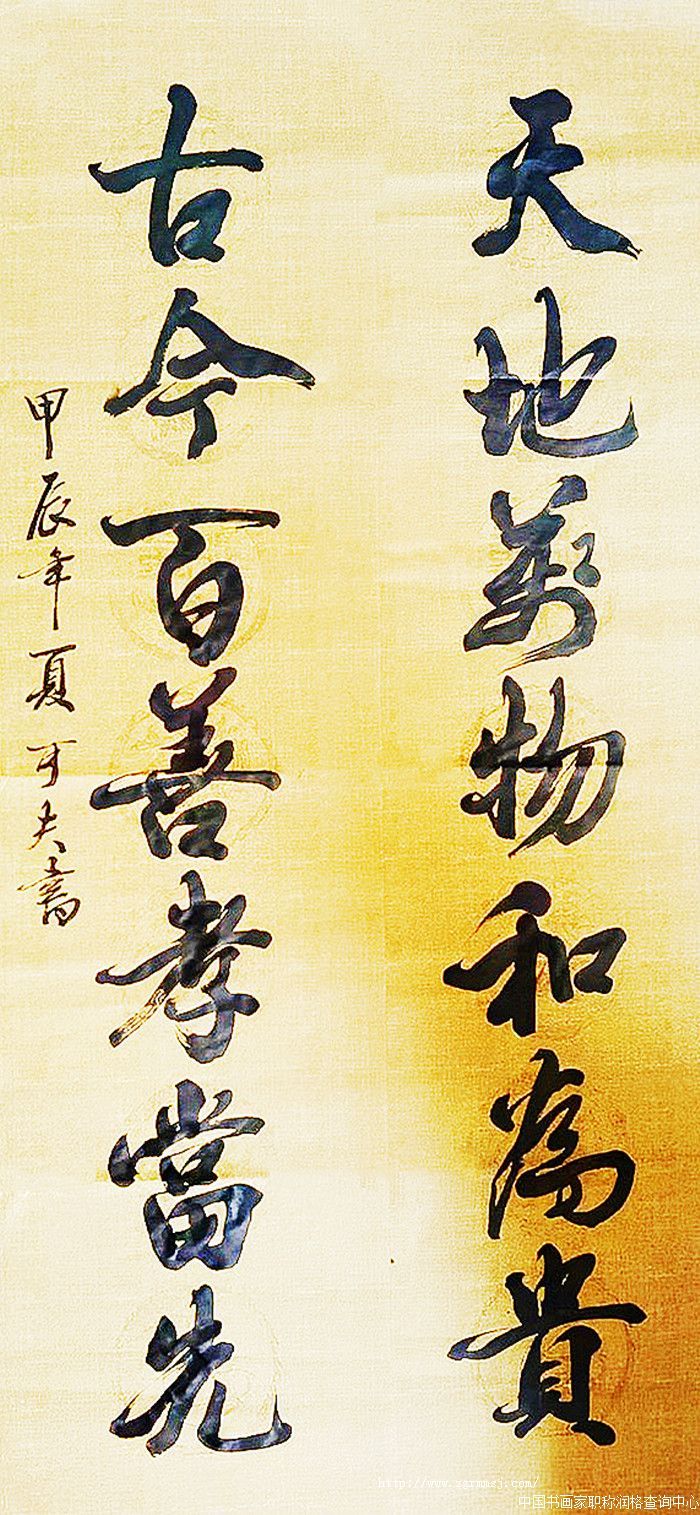 天地萬物和為貴
古今百善孝當先
甲辰年夏可夫書
中国书画家职称润格查询中心